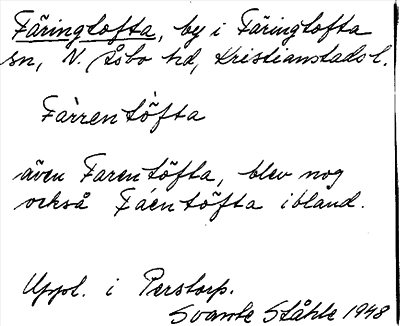 Färingtofta, by i Färingtofta
sn, N. Åsbo hd, Kristianstads l.
Fàrrentöfta
även Farentöfta, blev nog
också Fáentöfta ibland.
Uppl. i Perstorp.
Svante Ståhle 1948